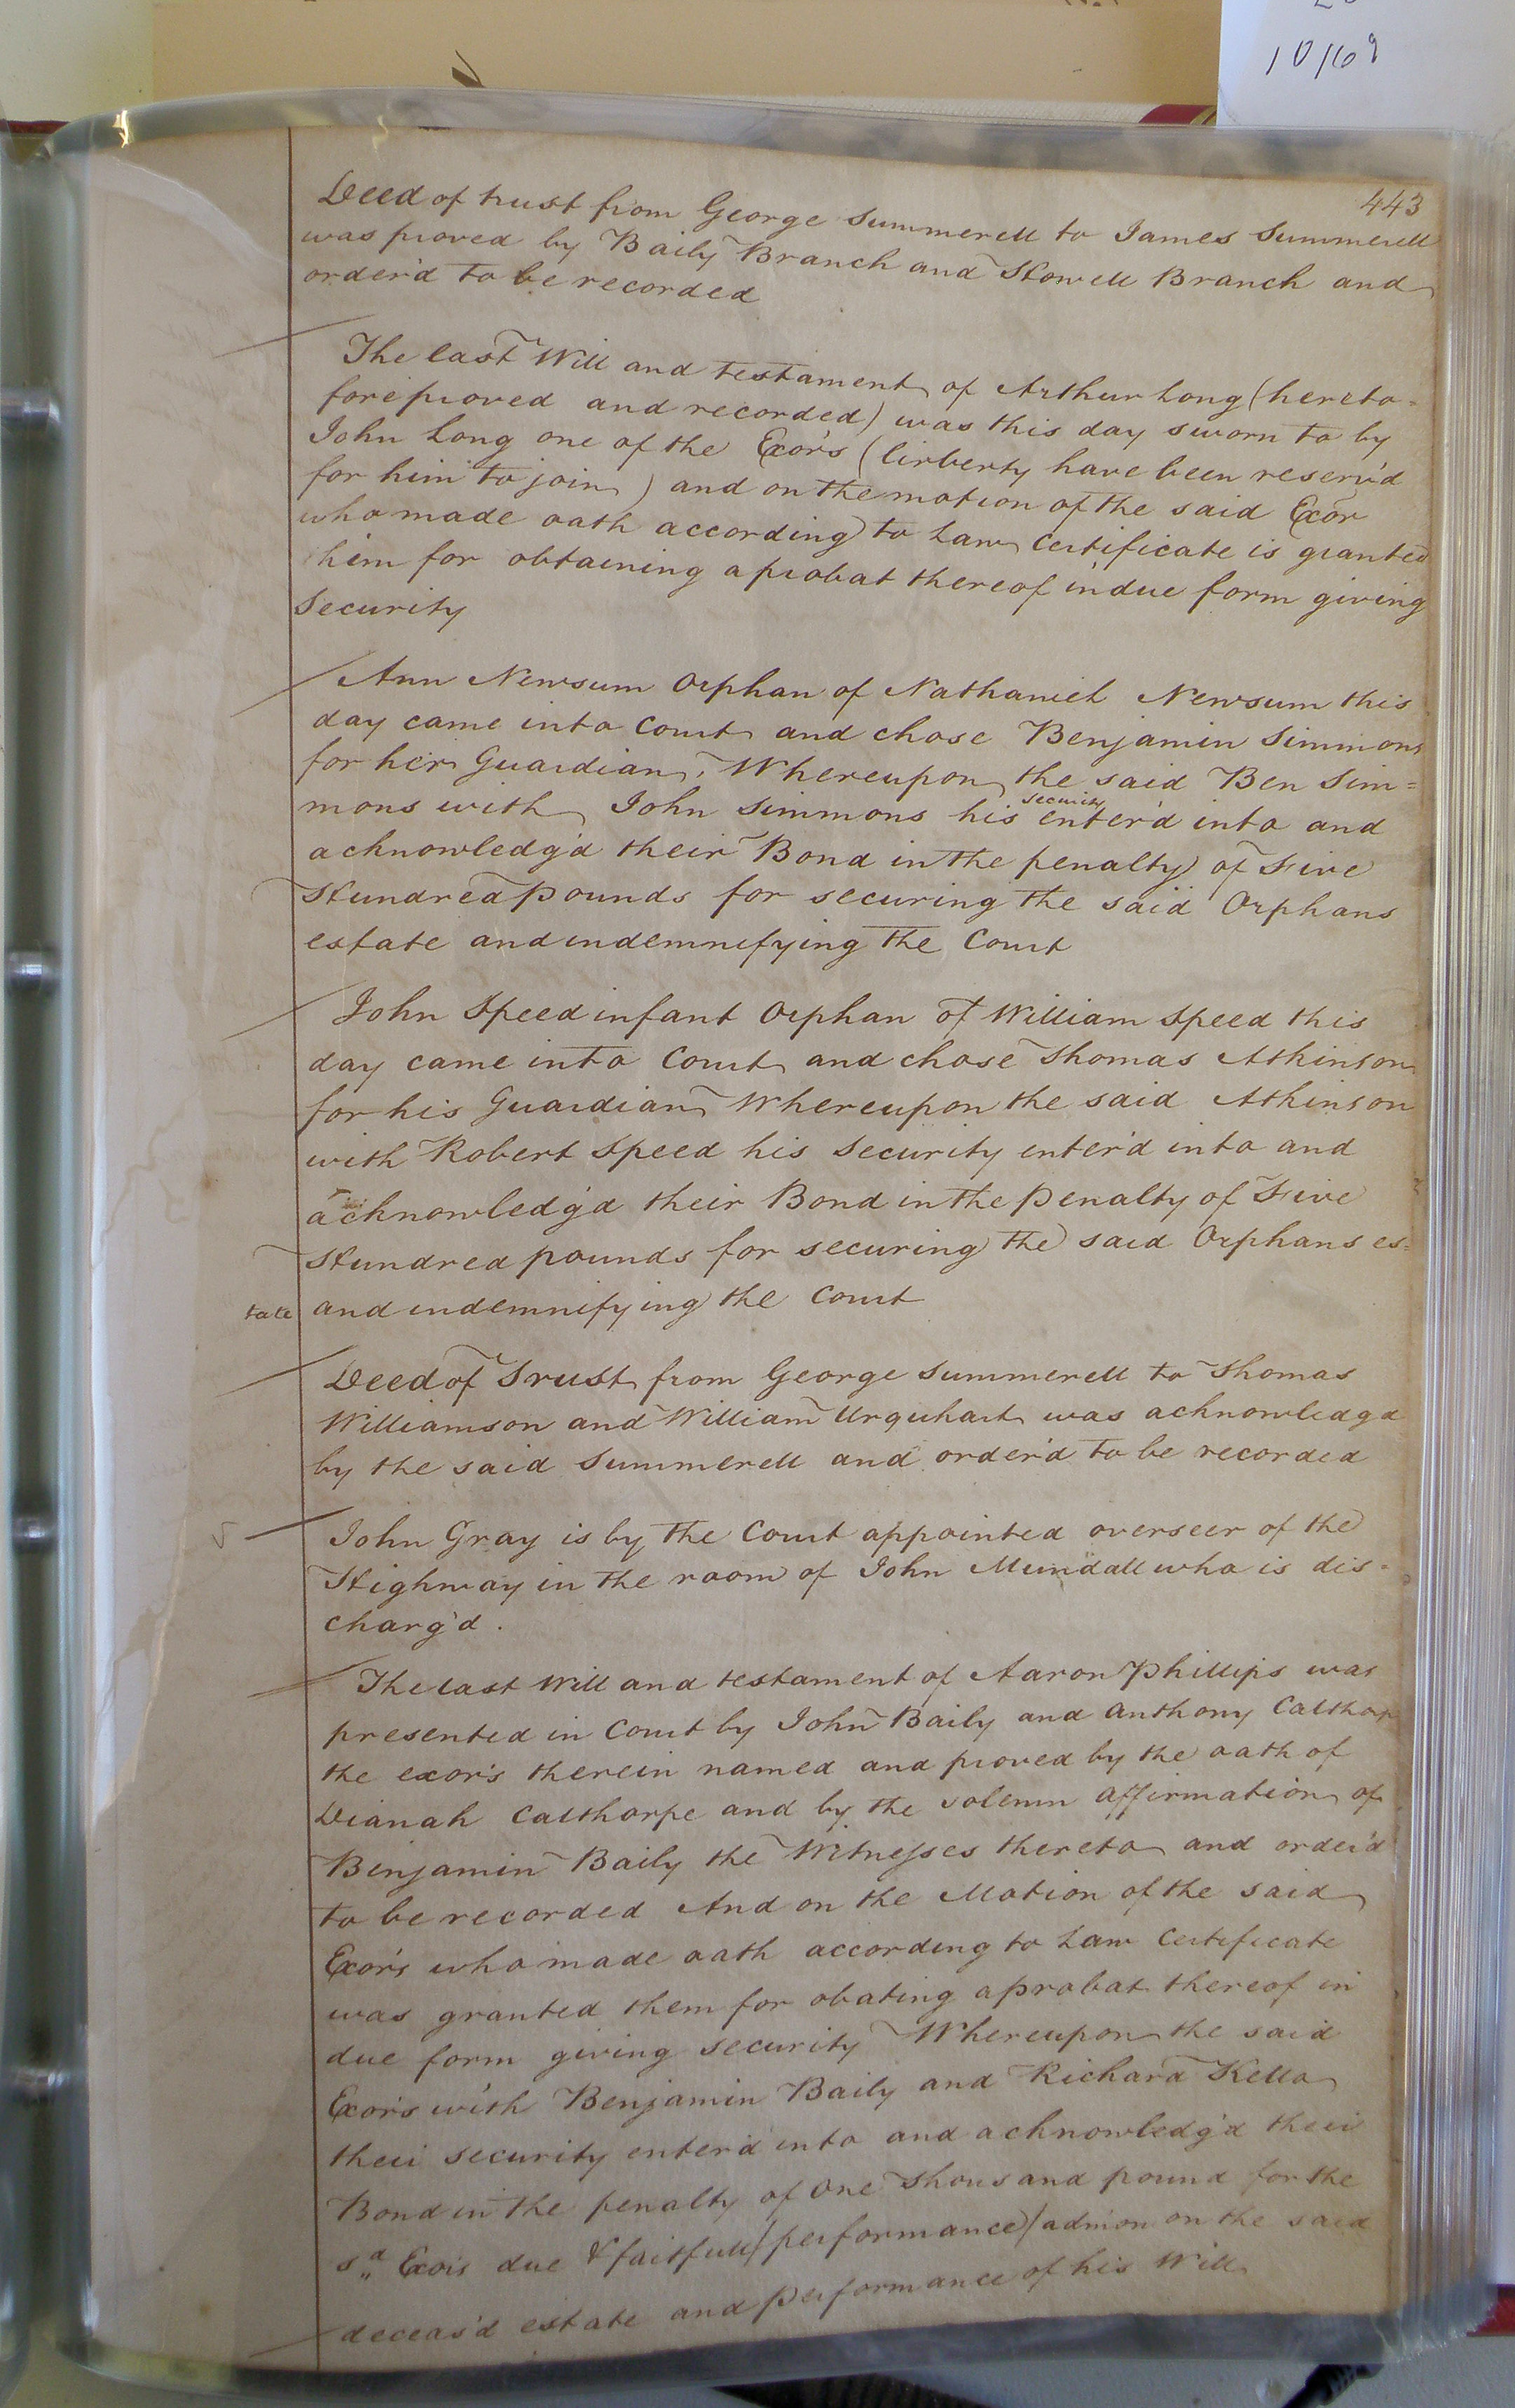 10/69
443
Deed of trust from George Summerell to James Summerell
was proved by Baily Branch and Howell Branch and
order'd to be recorded
The last Will and testament of Arthur Long (hereto=
fore proved and recorded) was this day sworn to by
John Long one of the Exor's (lirberty have been reserv'd
for him to join) and on the motion of the said Exor
who made oath according to Law Certificate is granted
him for obtaining a probat thereof in due form giving
Security
Ann Newsum Orphan of Nathaniel Newsum this
day came into Court and chose Benjamin Simmons
for her Guardian, Whereupon the said Ben Sim=
mons with John Simmons his security enter'd into and
acknowledg'd their Bond in the penalty of Five
Hundred pounds for securing the said Orphans
estate and indemnifying the Court
John Speed infant Orphan of William Speed this
day came into Court and chose Thomas Atkinson
for his Guardian Whereupon the said Atkinson
with Robert Speed his Security enter'd into and
acknowledg'd their Bond in the penalty of Five
Hundred pounds for securing the said Orphans es=
tate and indemnifying the Court
Deed of Trust from George Summerell to Thomas
Williamson and William Urquhart was acknowledg'd
by the said Summerell and order'd to be recorded
John Gray is by the Court appointed overseer of the
Highway in the room of John Mundall who is dis=
charg'd.
The last Will and testament of Aaron Phillips was
presented in Court by John Baily and Anthony Calthorp
the exor's therein named and proved by the oath of
Dianah Calthorpe and by the solemn affirmation of
Benjamin Baily the Witnesses thereto and order'd
to be recorded And on the Motion of the said
Exor's who made oath according to Law Certificate
was granted them for obating a probat thereof in
due form giving security Whereupon the said
Exor's with Benjamin Baily and Richard Kello
their security enter'd into and acknowledg'd their
Bond in the penalty of One Thousand pound for the
sd Exors due & faitfull performance admon on the said
deceas'd estate and performance of his Will